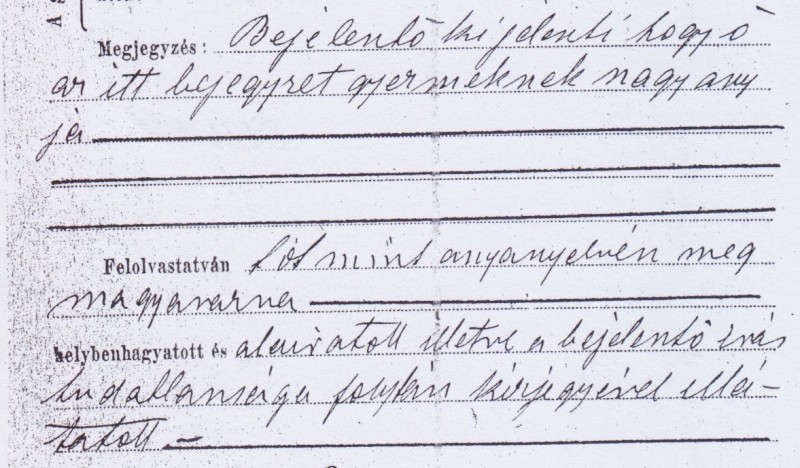 Megjegyzés: Bejelentő kijelenti hogy ő
az itt bejegyzet gyermeknek nagyany
ja
Felolvastatván tót mint anyanyelvén meg
magyarazva
helybenhagyatott és alairatott illetve a bejelentő irás
tudatlansága folytán kézjegyével ellá-
tatott. —